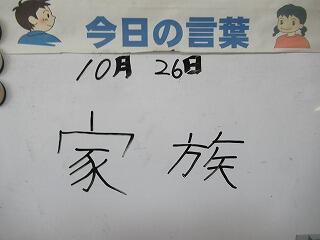 今日の言葉
10月 26日
家族